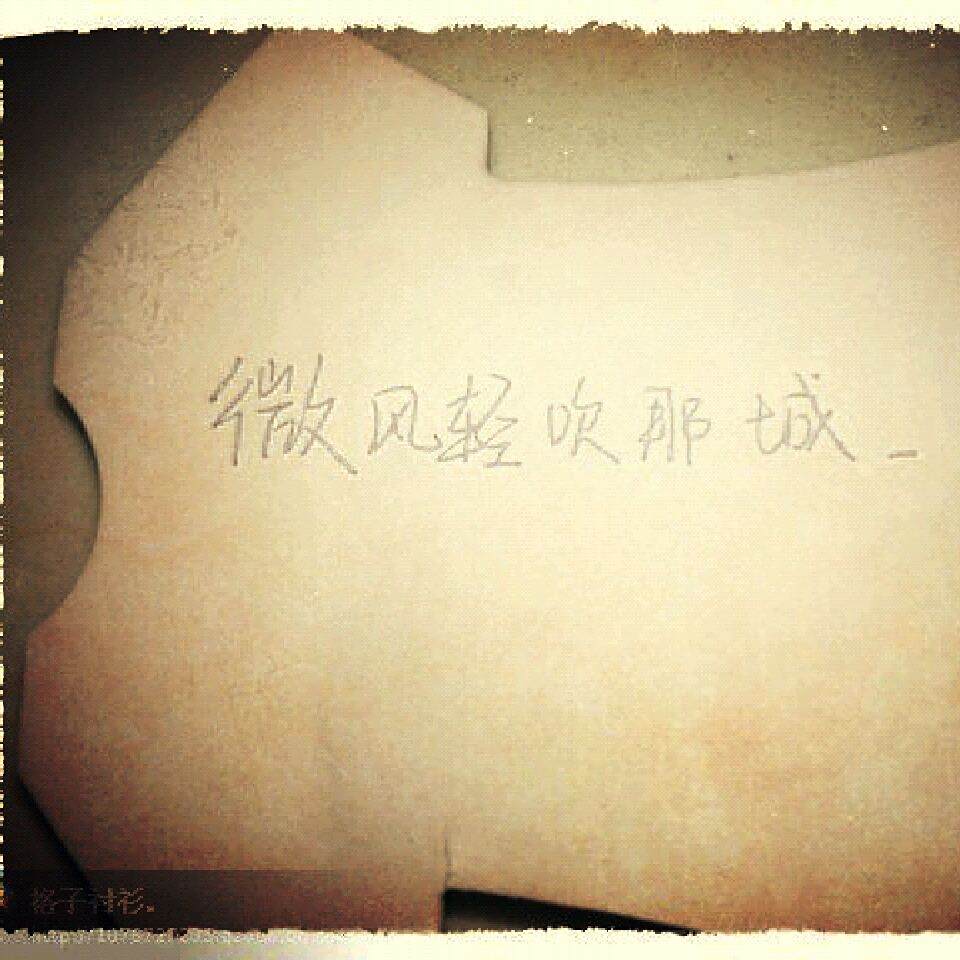 微风轻吹那城_
格子衬衫.